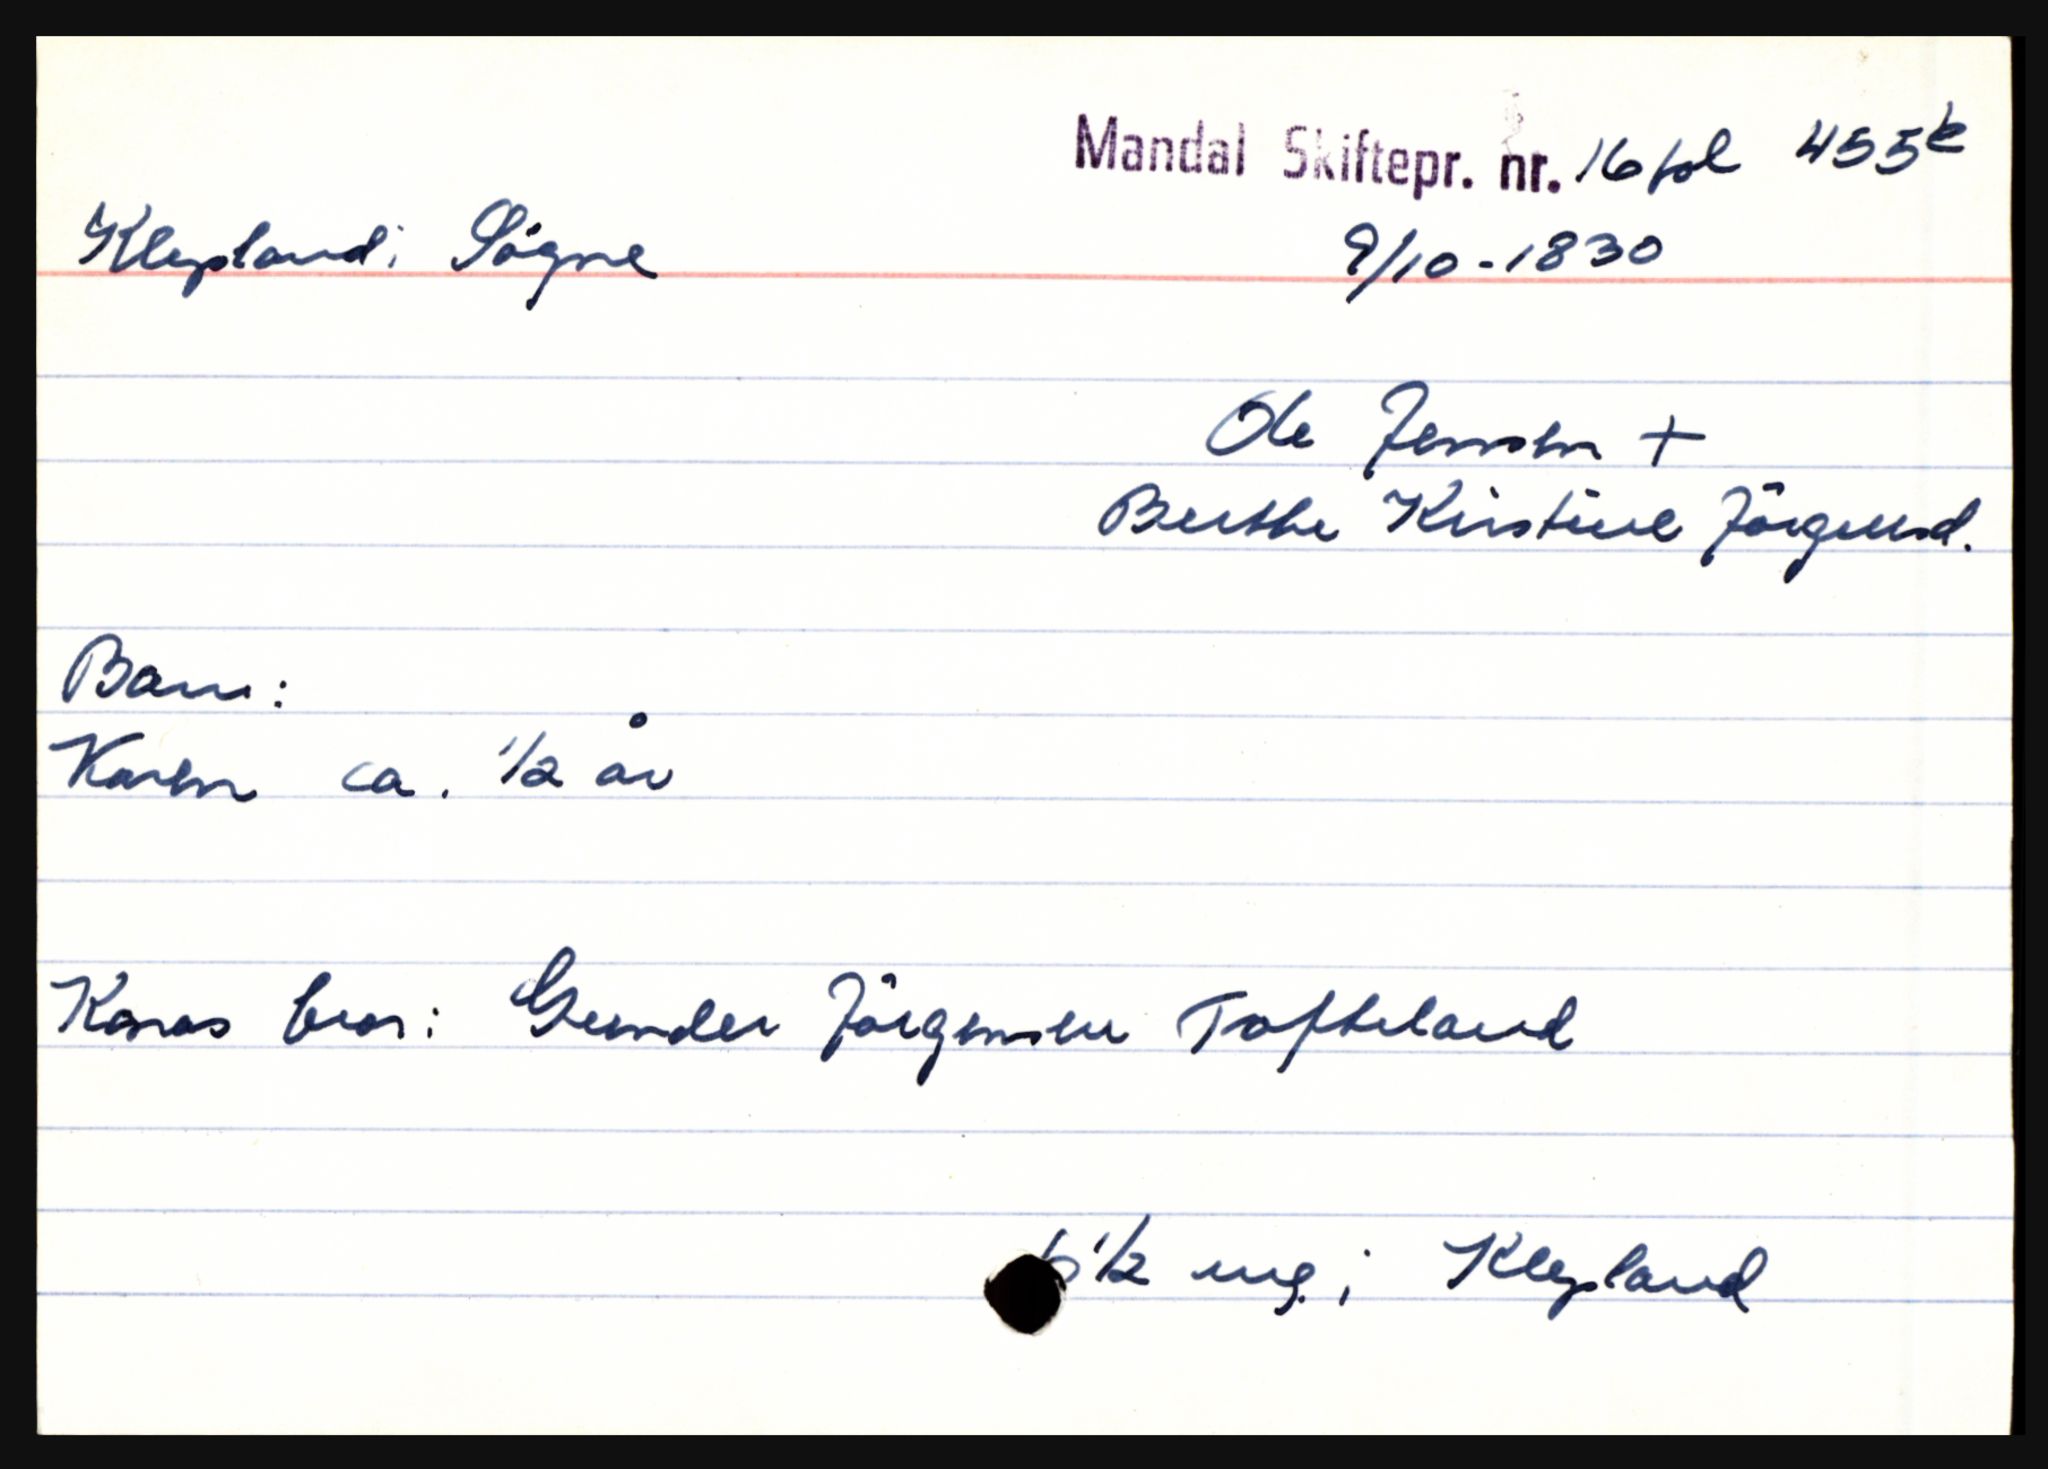 Mandal Skiftepr. nr. 16 fol 455b
Klepland i Søgne 9/10-1830
Ole Jensen +
Berthe Kirstine Jörgensd.
Barn:
Karen ca. 1/2 år
Konas bror: Gunder Jörgensen Tofteland
6 1/2 mg. i Klepland